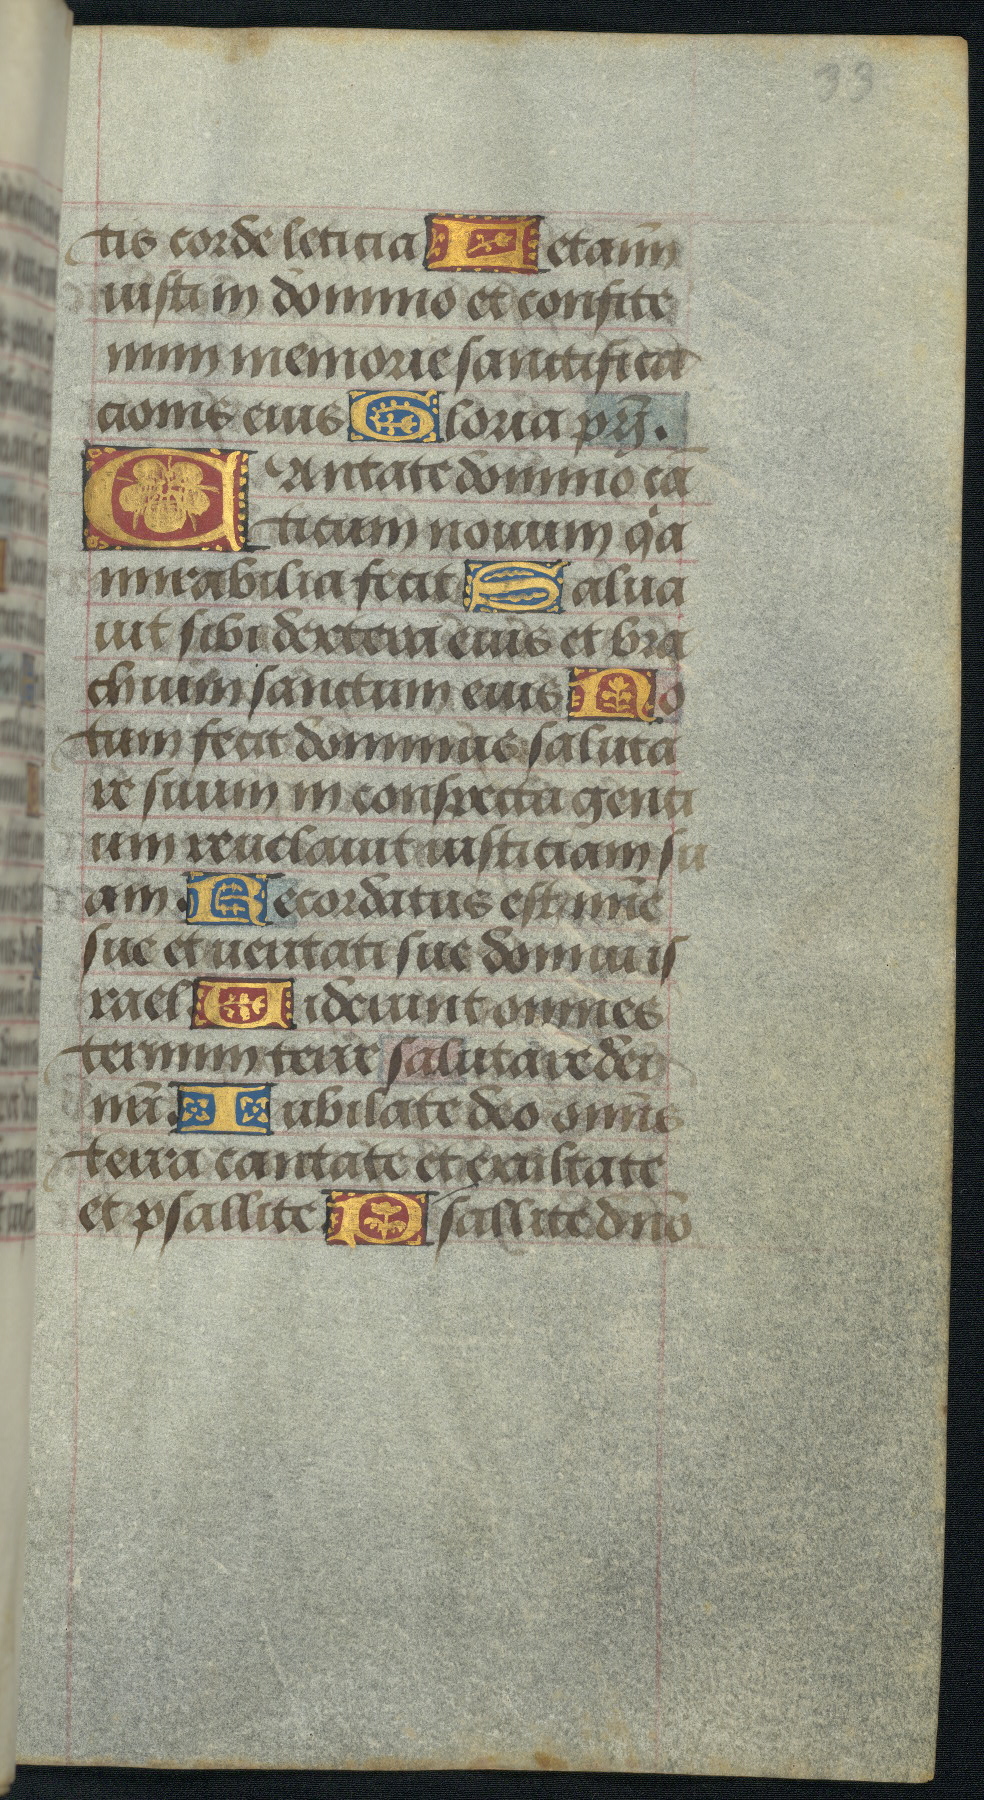 33
tis corde leticia Letami͞n
iusti in domino et confite
mini memorie sanctifica
cionis eius Gloria pr̄j.
CAntate domino cā
ticum nouum qͥa
mirabilia fecit Salua
uit sibi dextera eius et bra
chium sanctum eius No
tum fecit dominus saluta
re suum in conspectu genti
um reuelauit iusticiam su
am. Recordatus est mīe
sue et ueritati sue domui is
rael Uiderunt omnes
termini terre salutare dei
nr̄i. Iubilate deo omnis
terra cantate et exultate
et psallite Psallite dn̄o